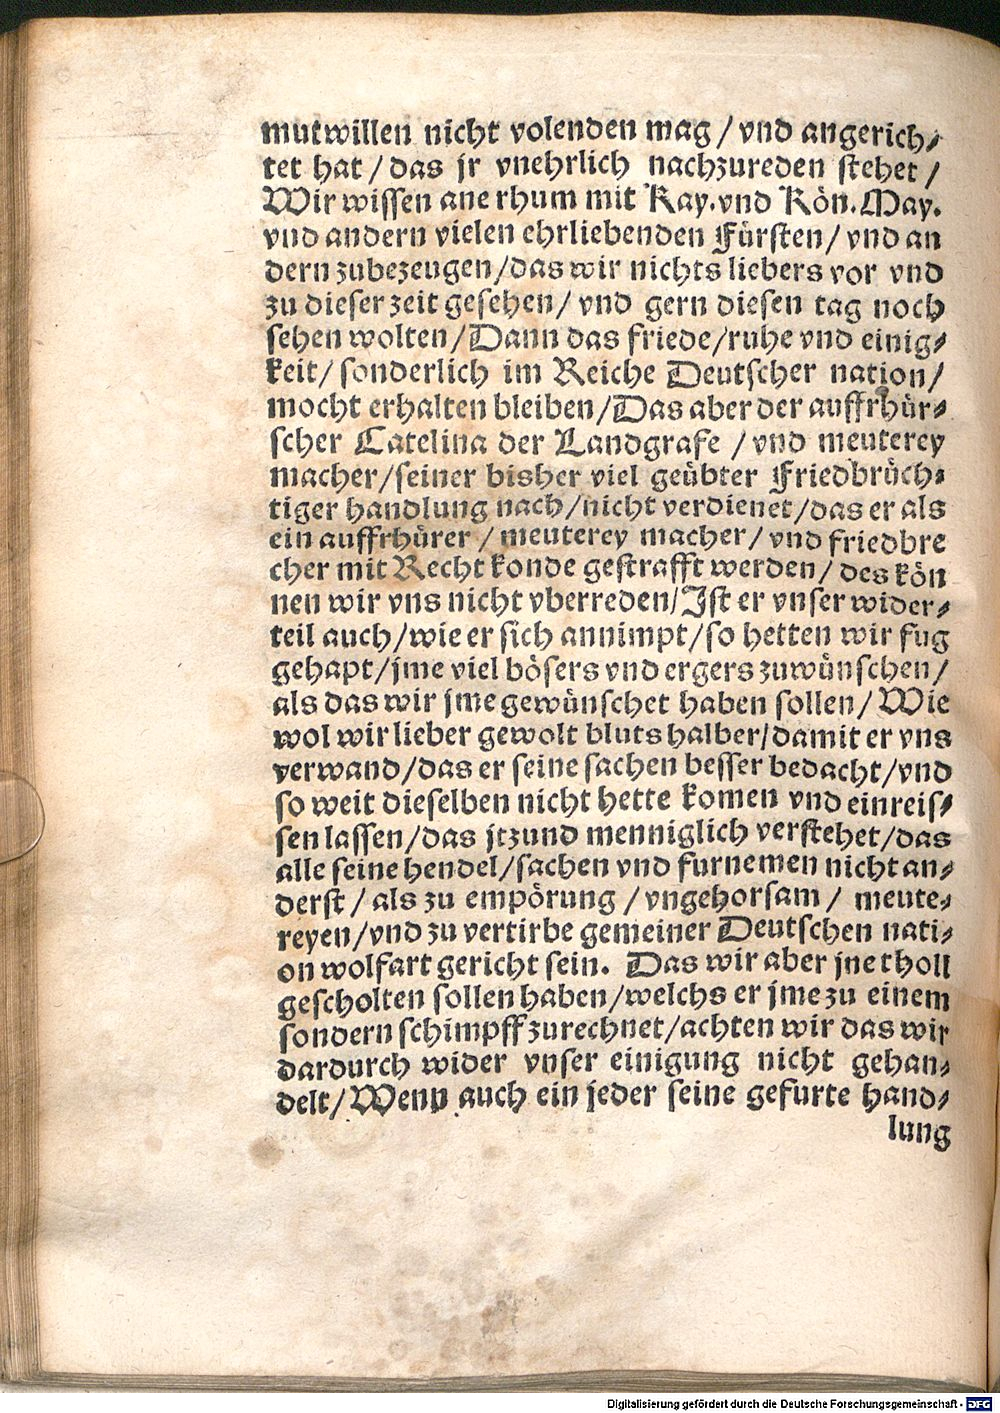 mutwillen nicht volenden mag / vnd angerich⸗
tet hat / das jr vnehrlich nachzureden stehet /
Wir wissen ane rhum mit Kay. vnd Kön. May.
vnd andern vielen ehrliebenden Fürsten / vnd an
dern zubezeugen / das wir nichts liebers vor vnd
zu dieser zeit gesehen / vnd gern diesen tag noch
sehen wolten / Dann das friede / ruhe vnd einig⸗
keit / sonderlich im Reiche Deutscher nation /
mocht erhalten bleiben / Das aber der auffrhür⸗
scher Catelina der Landgrafe / vnd meuterey
macher / seiner bisher viel geübter Friedbrüch⸗
tiger handlung nach / nicht verdienet / das er als
ein auffrhürer / meuterey macher / vnd friedbre
cher mit Recht konde gestrafft werden / des kön
nen wir vns nicht vberreden / Ist er vnser wider⸗
teil auch / wie er sich annimpt / so hetten wir fug
gehapt / jme viel bösers vnd ergers zuwünschen /
als das wir jme gewünschet haben sollen / Wie
wol wir lieber gewolt bluts halber / damit er vns
verwand / das er seine sachen besser bedacht / vnd
so weit dieselben nicht hette komen vnd einreis⸗
sen lassen / das jtzund menniglich verstehet / das
alle seine hendel / sachen vnd furnemen nicht an⸗
derst / als zu empörung / vngehorsam / meute⸗
reyen / vnd zu vertirbe gemeiner Deutschen nati⸗
on wolfart gericht sein. Das wir aber jne tholl
gescholten sollen haben / welchs er jme zu einem
sondern schimpff zurechnet / achten wir das wir
dardurch wider vnser einigung nicht gehan⸗
delt / Wenn auch ein jeder seine gefurte hand⸗
lung
Digitalisierung gefördert durch die Deutsche Forschungsgemeinschaft - DFG